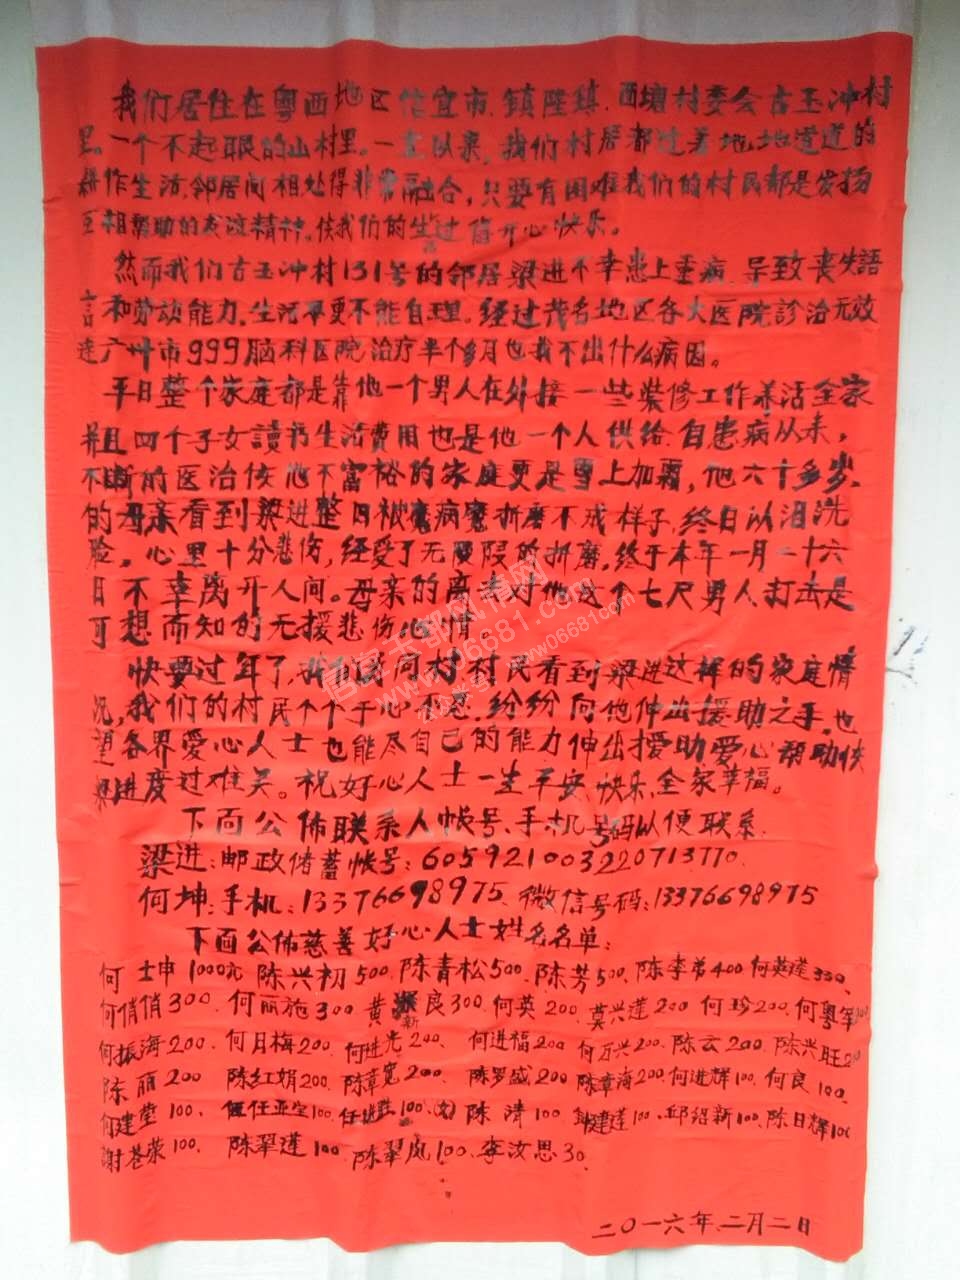 我们居住在粤西地区信宜市、镇隆镇、西塘村委会古玉冲村
里。一个不起眼的山村里。一直以来，我们村居都过着地地道道的
耕作生活，邻居间相处得非常融合，只要有困难我们的村民都是发扬
互相帮助的友谊精神。使我们的生过倍开心快乐。
然而我们古玉冲村131号的邻居梁进不幸患上重病，导致丧失语
言和劳动能力，生活更不能自理。经过茂名地区各大医院診治无效
连广州市999脑科医院治疗半个多月也找不出什么病因。
平日整个家庭都是靠他一个男人在外接一些装修工作养活全家
并且四个子女讀书生活费用也是他一个人供给。自患病从来，
不断的医治使他不富裕的家庭更是雪上加霜，他六十多岁
的母亲看到梁进整日被病魔折磨不成样子，终日以泪洗
脸，心里十分悲伤，经受了无限的折磨，终于本年一月二十六
日不幸离开人间。母亲的离去对他这个七尺男人打击是
可想而知的无援悲伤心情。
快要过年了，我们同村村民看到梁进这样的家庭情
况，我们的村民个个于心不忍，纷纷向他伸出援助之手，也
望各界爱心人士也能尽自己的能力伸出援助爱心，帮助快
梁进度过难关。祝好心人士一生平安快乐，全家幸福。
下面公佈联系人帐号、手机号码以便联系
梁进：邮政储蓄帐号：605921003220713770
何坤：手机：13376698975、微信号码：13376698975
下面公佈慈善好心人士姓名名单：
何士坤1000元 陈兴初500、陈青松500、陈芳500、陈李弟400 何英莲300、
何俏俏300、何丽施300 黄新良300、何英200、莫兴莲200 何珍200、何粤军200
何振海200、何月梅200 何进光200、何进福200 何万兴200、陈云200、陈兴旺200
陈丽200 陈红娟200、陈章宽200、陈罗盛200 陈章海200、何进辉100、何良100、
何建堂100、任亚宝100、任进胜100、陈清100 建莲100、邱绍新100、陈日辉100
谢苍荣100、陈翠莲100、陈翠凤100、李汝思30、
二〇一六年、二月二日
信宜玉都风情网
www.06681.com
公众号:www06681com